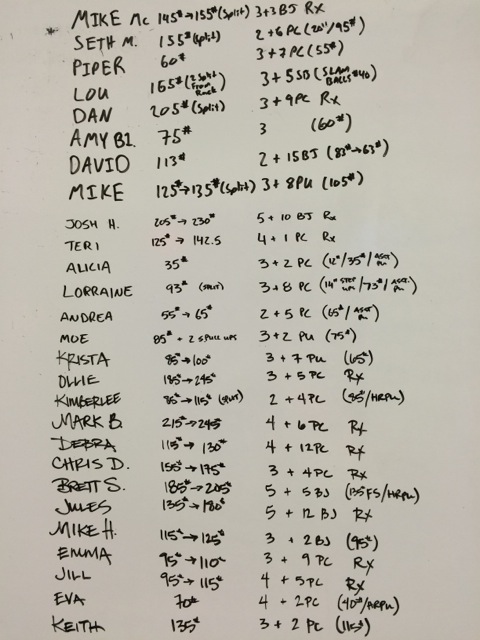 MIKE Mc 145# → 155# (split) 3+3 BJ Rx
SETH M. 155# (split) 2+6 PC (20"/95#)
PIPER 60# 3+7 PC (55#)
LOU 165# (2 split from Rack) 3+5 SB (SLAM BALLS #40)
DAN 205# (split) 3+9 PC Rx
AMY B1. 75# 3 (60#)
DAVID 113# 2+15 BJ (83#→63#)
MIKE 125#→135# (split) 3+8 PU (105#)
JOSH H. 205# → 230# 5+10 BJ Rx
TERI 125# → 142.5 4+1 PC Rx
ALICIA 35# 3+2 PC (12"/35#/ASST. PU)
LORRAINE 93# (SPLIT) 3+8 PC (14" STEP UPS/73#/ASST. PU)
ANDREA 55# → 65# 2+5 PC (65#/ASST. PU)
MOE 85# + 2 S PULL UPS 3+2 PU (75#)
KRISTA 85#→100# 3+7 PU (65#)
OLLIE 185#→245# 3+5 PC Rx
KIMBERLEE 85#→115# (SPLIT) 2+4 PC (85#/HRPU)
MARK B. 215#→245# 4+6 PC Rx
DEBRA 115#→130# 4+12 PC Rx
CHRIS D. 155#→175# 3+4 PC Rx
BRETT S. 185#→205# 5+5 BJ (135 FS/HRPU)
JULES 135#→180# 5+12 BJ Rx
MIKE H. 115#→125# 3+2 BJ (95#)
EMMA 95#→110# 3+9 PC Rx
JILL 95#→115# 4+5 PC Rx
EVA 70# 4+2 PC (40#/HRPU)
KEITH 135# 3+2 PC (115#)